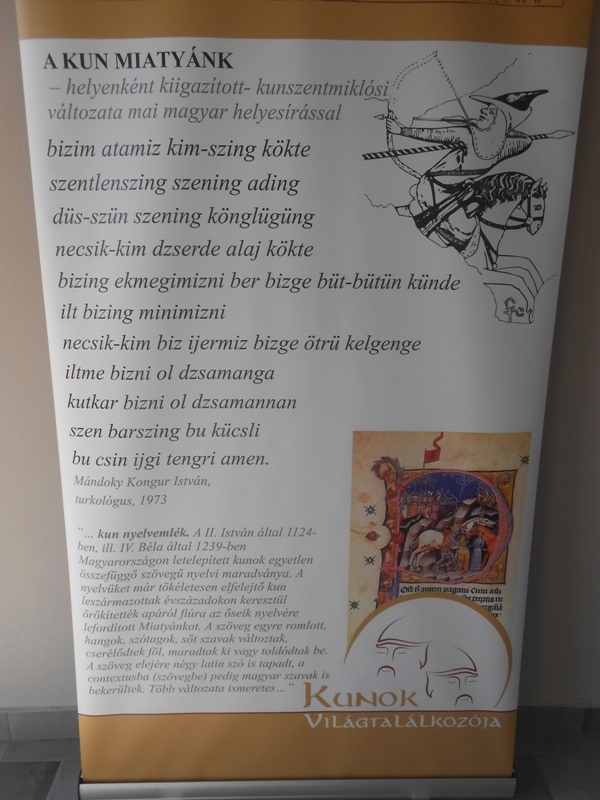 A KUN MIATYÁNK
– helyenként kiigazított- kunszentmiklósi
változata mai magyar helyesírással
bizim atamiz kim-szing kökte
szentlenszing szening ading
düs-szün szening könglügüng
necsik-kim dzserde alaj kökte
bizing ekmegimizni ber bizge büt-bütün künde
ilt bizing minimizni
necsik-kim biz ijermiz bizge ötrü kelgenge
iltme bizni ol dzsamanga
kutkar bizni ol dzsamannan
szen barszing bu kücsli
bu csin ijgi tengri amen.
Mándoky Kongur István,
turkológus, 1973
"... kun nyelvemlék. A II. István által 1124-
ben, ill. IV. Béla által 1239-ben
Magyarországon letelepített kunok egyetlen
összefüggő szövegű nyelvi maradványa. A
nyelvüket már tökéletesen elfelejtő kun
leszármazottak évszázadokon keresztül
örökítették apáról fiúra az őseik nyelvére
lefordított Miatyánkot. A szöveg egyre romlott,
hangok, szótagok, sőt szavak változtak,
cserélődtek föl, maradtak ki vagy toldódtak be.
A szöveg elejére négy latin szó is tapadt, a
contextusba (szövegbe) pedig magyar szavak is
bekerültek. Több változata ismeretes..."
KUNOK
VILÁGTALÁLKOZÓJA